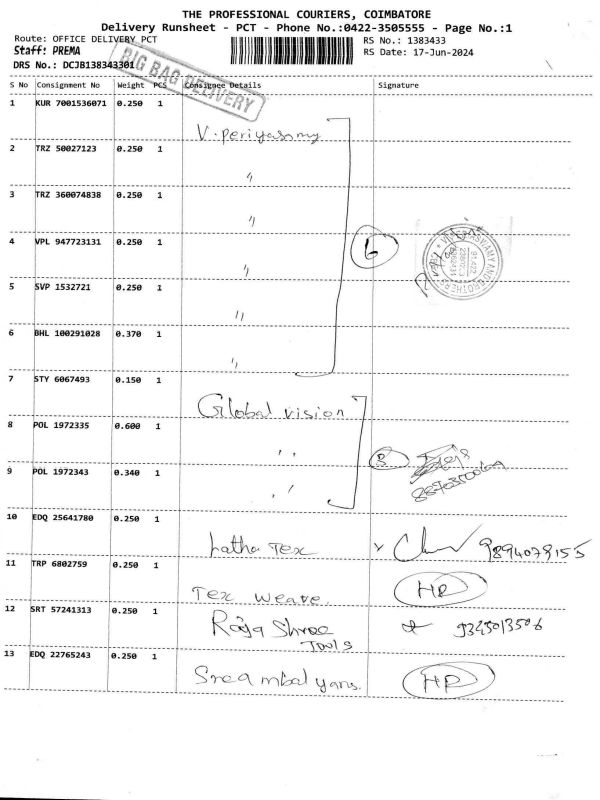 THE PROFESSIONAL COURIERS, COIMBATORE
Delivery Runsheet - PCT - Phone No.:0422-3505555 - Page No.:1
Route: OFFICE DELIVERY PCT
RS No.: 1383433
Staff: PREMA
RS Date: 17-Jun-2024
DRS No.: DCJB138343301
BIG BAG DELIVERY
S No Consignment No Weight PCS Consignee Details Signature
1 KUR 7001536071 0.250 1
V. periyasamy
2 TRZ 50027123 0.250 1
"
3 TRZ 360074838 0.250 1
"
4 VPL 947723131 0.250 1
6
"
5 SVP 1532721 0.250 1
"
6 BHL 100291028 0.370 1
"
7 STY 6067493 0.150 1
Global vision
8 POL 1972335 0.600 1
" 3
9 POL 1972343 0.340 1
"
10 EDQ 25641780 0.250 1
Latha Tex 9894079155
11 TRP 6802759 0.250 1
Tex Weave HP
12 SRT 57241313 0.250 1
Raja Shree
Tools
13 EDQ 22765243 0.250 1
HP